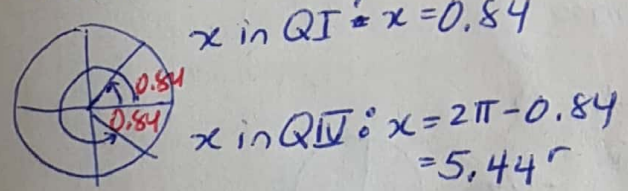 x in QI : x = 0.84
0.84
0.84
x in QIV : x = 2π - 0.84
= 5.44 r